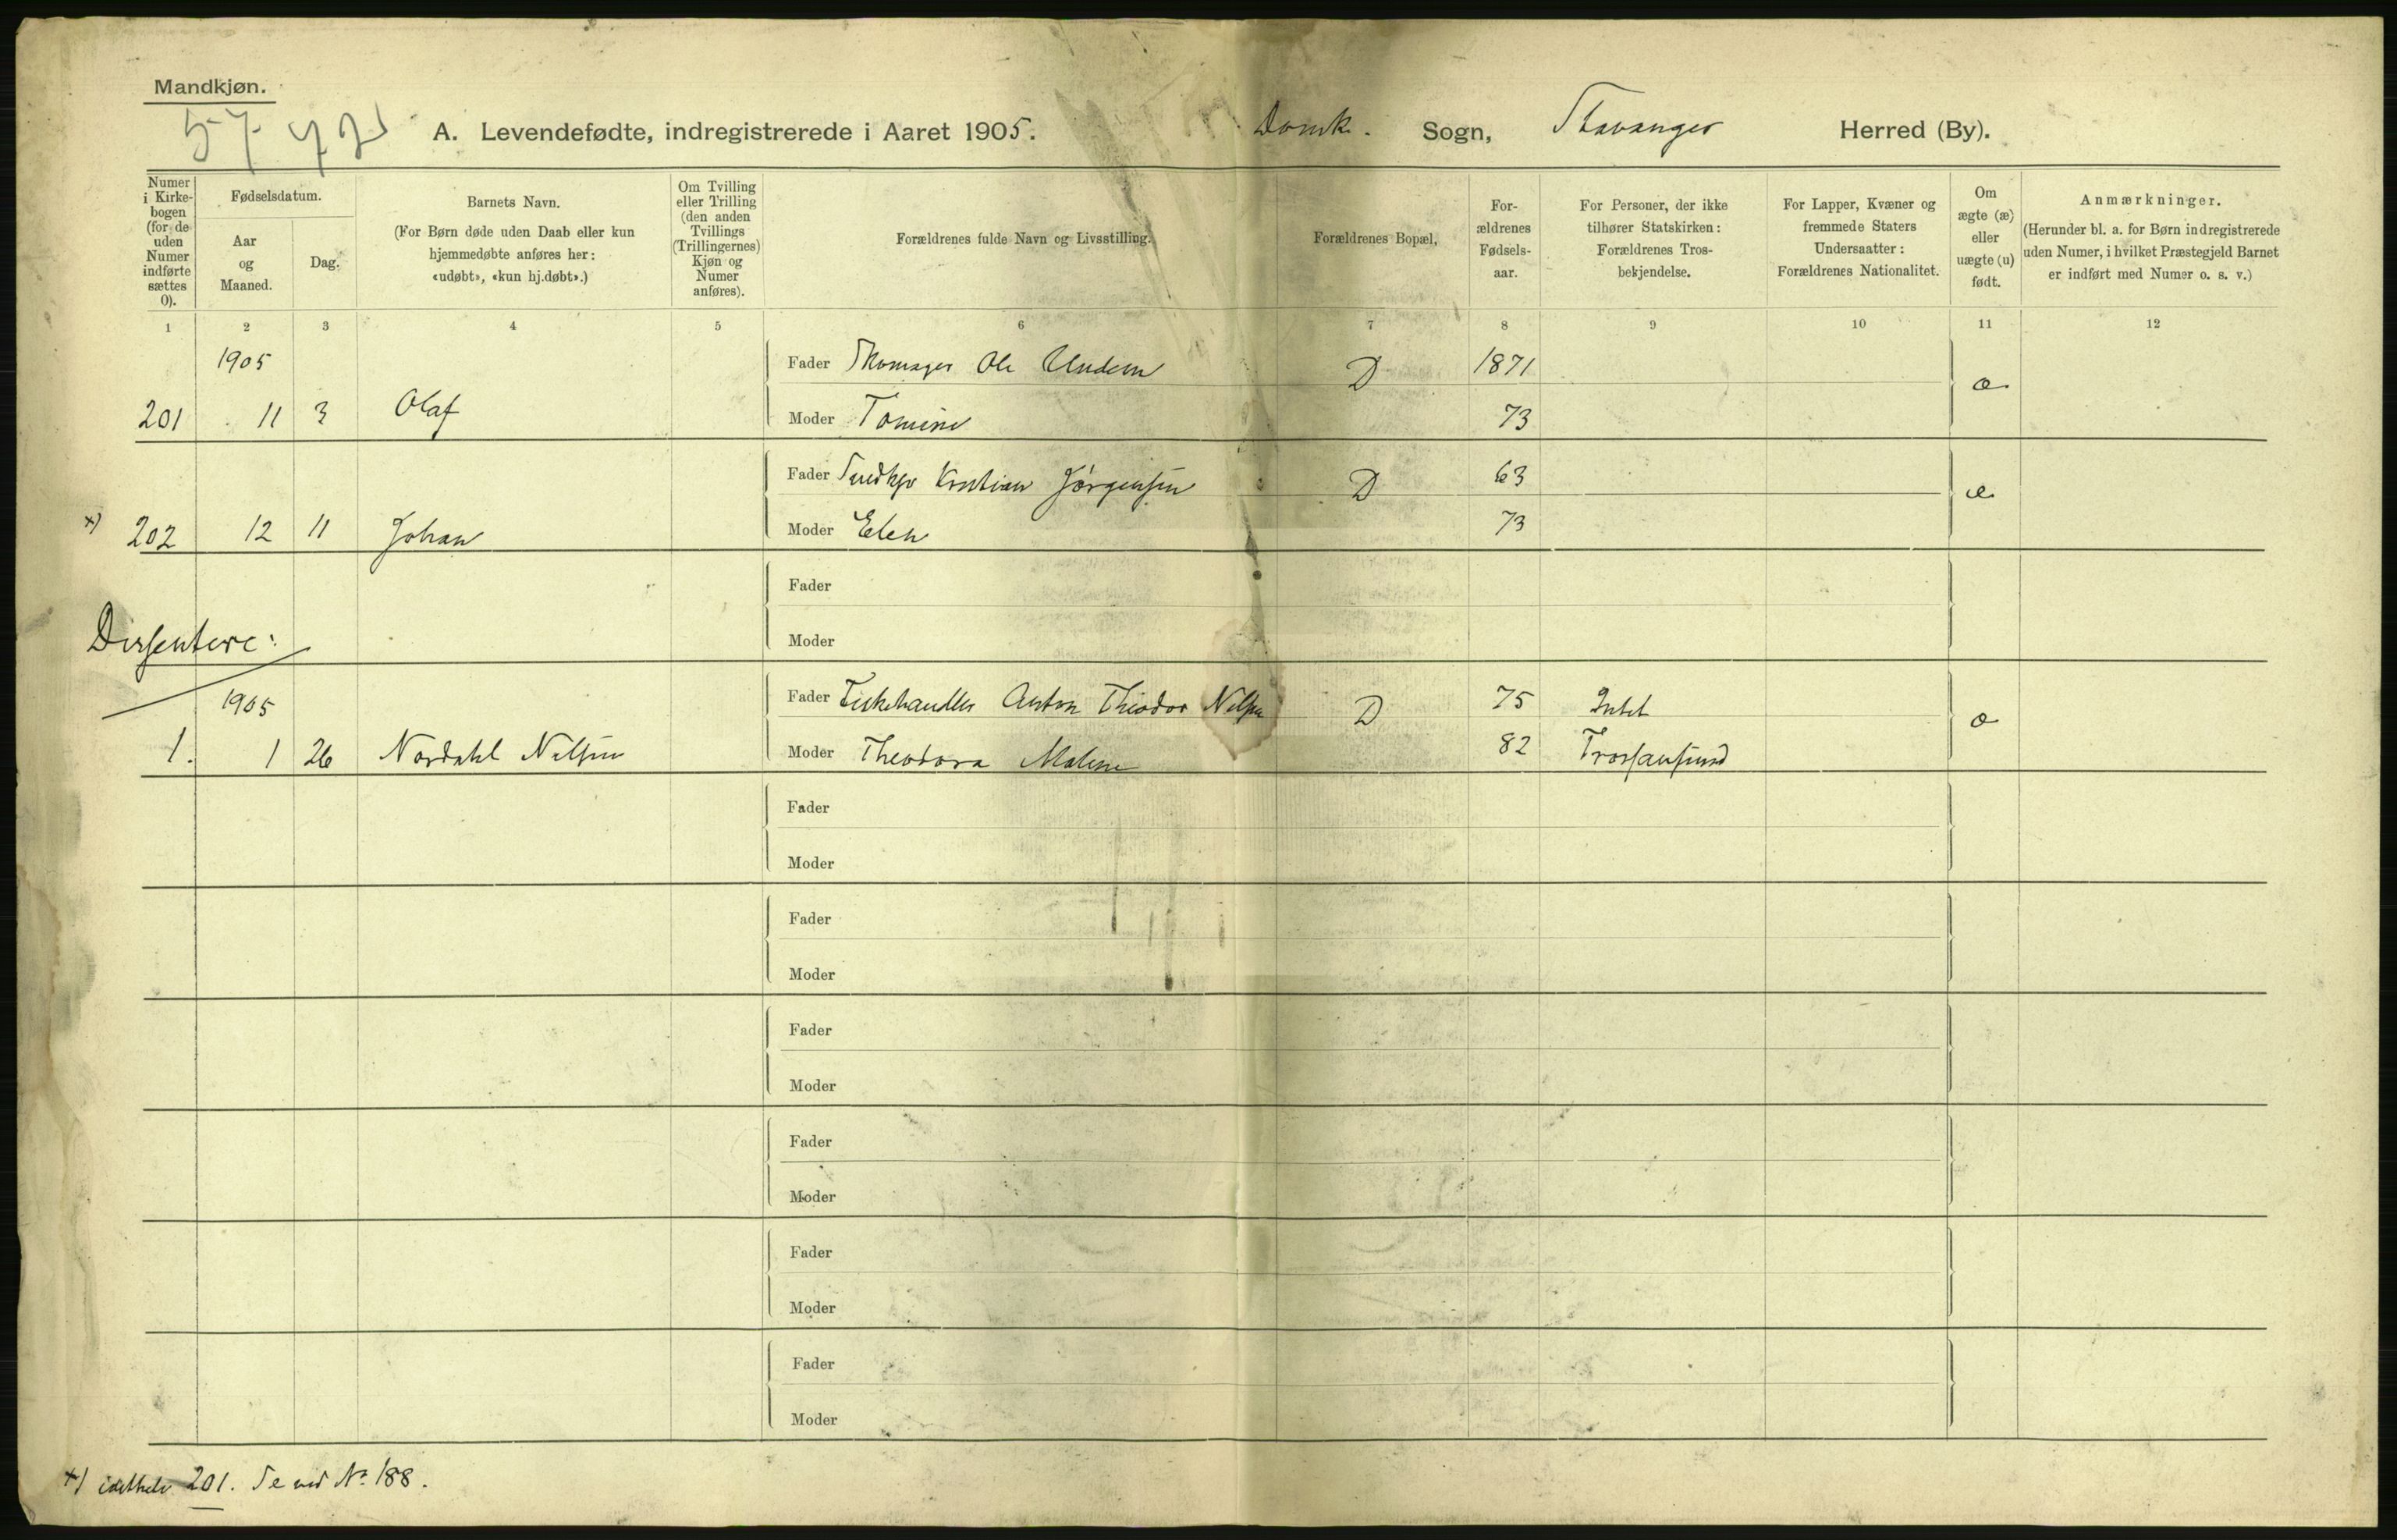 Mandkjøn.
57
A. Levendefødte, indregistrerede i Aaret 1905. Domk. Sogn, Stavanger Herred (By).
Numer i Kirke-bogen (for de uden Numer indførte sættes 0).
Fødselsdatum.
Aar og Maaned.
Dag.
Barnets Navn.
(For Børn døde uden Daab eller kun hjemmedøbte anføres her: «udøbt», «kun hj.døbt».)
Om Tvilling eller Trilling (den anden Tvillings (Trillingernes) Kjøn og Numer anføres).
Forældrenes fulde Navn og Livsstilling.
Forældrenes Bopæl,
For-ældrenes Fødsels-aar.
For Personer, der ikke tilhører Statskirken: Forældrenes Tros-bekjendelse.
For Lapper, Kvæner og fremmede Staters Undersaatter: Forældrenes Nationalitet.
Om ægte (æ) eller uægte (u) født.
Anmærkninger.
(Herunder bl. a. for Børn indregistrerede uden Numer, i hvilket Præstegjeld Barnet er indført med Numer o. s. v.)
1 2 3 4 5 6 7 8 9 10 11 12
1905 Fader Skomager Ole Undem D 1871 æ
201 11 3 Olaf Moder Tomine 73
Fader Kristian Jörgensen D 63 æ
x) 202 12 11 Johan Moder Elen 73
Fader
Dissentere:
Moder
1905 Fader Fiskehandler Anton Theodor Nilsen D 75 Intet æ
1. 1 26 Nordahl Nilsen Moder Theodora Malene 82 Trossamfund
Fader
Moder
Fader
Moder
Fader
Moder
Fader
Moder
Fader
Moder
Fader
Moder
x) 201. Se ved No 188.